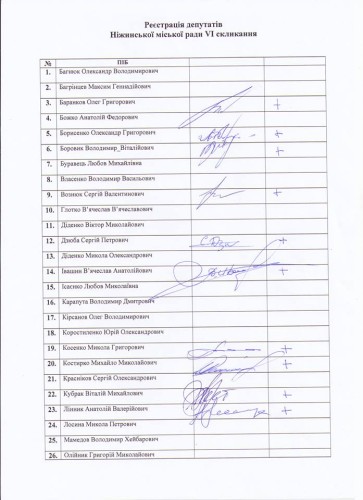 Реєстрація депутатів
Ніжинської міської ради VI скликання
№ ПІБ
1. Багнюк Олександр Володимирович
2. Багрінцев Максим Геннадійович
3. Баранков Олег Григорович +
4. Божко Анатолій Федорович
5. Борисенко Олександр Григорович +
6. Боровик Володимир Віталійович +
7. Буравець Любов Михайлівна
8. Власенко Володимир Васильович
9. Вознюк Сергій Валентинович +
10. Глотко В'ячеслав В'ячеславович
11. Діденко Віктор Миколайович
12. Дзюба Сергій Петрович +
13. Діденко Микола Олександрович
14. Іващин В'ячеслав Анатолійович +
15. Ісаєнко Любов Миколаївна
16. Карапута Володимир Дмитрович
17. Кірсанов Олег Володимирович
18. Коростиленко Юрій Олександрович
19. Косенко Микола Григорович +
20. Костирко Михайло Миколайович +
21. Красніков Сергій Олександрович
22. Кубрак Віталій Михайлович +
23. Лінник Анатолій Валерійович +
24. Лосина Микола Петрович
25. Мамедов Володимир Хейбарович
26. Олійник Григорій Миколайович